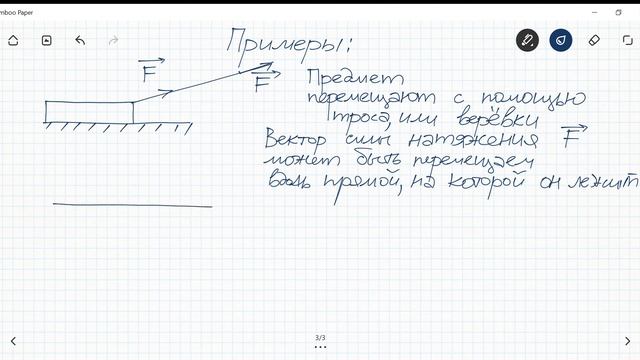 mboo Paper
Примеры:
F
F
Предмет
перемещают с помощью
троса, или верёвки
Вектор силы натяжения F
может быть перемещаем
вдоль прямой, на которой он лежит
3/3